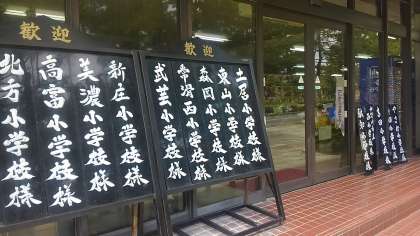 歓迎
小学校様
東山小学校様
森岡小学校様
常滑西小学校様
武芸小学校様
歓迎
新庄小学校様
美濃小学校様
高富小学校様
北方小学校様